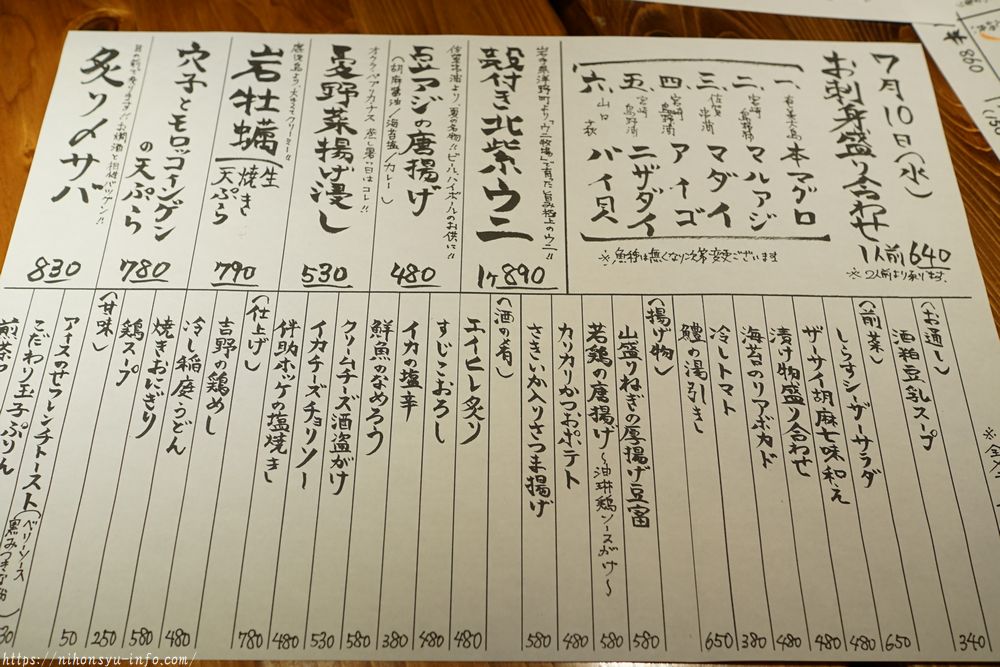 7月10日(水)
お刺身盛り合わせ
1人前 640
※2人前より承ります。
一、奄美大島 本マグロ
二、宮崎 島野浦 マルアジ
三、佐賀 串浦 マダイ
四、宮崎 島野浦 アイゴ
五、宮崎 島野浦 ニザダイ
六、山口 萩 バイ貝
※魚種は無くなり次第変更ございます
岩手県洋野町より、"ウニ牧場"で育った旨み極上のウニ!!
殻付き北紫ウニ
1ヶ890
ビールハイボールのお供に!!
豆アジの唐揚げ
(胡麻醤油/海苔塩/カレー)
480
夏野菜揚げ浸し
530
岩牡蠣(生 焼き 天ぷら
790
穴子とモロッコインゲンの天ぷら
780
炙り〆サバ
830
(お通し)
酒粕豆乳スープ
340
(前菜)
しらすシーザーサラダ
650
ザーサイ胡麻七味和え
480
漬け物盛り合わせ
480
海苔のリアボカド
480
冷しトマト
380
鱧の湯引き
650
(揚げ物)
山盛りねぎの厚揚げ豆富
580
若鶏の唐揚げ 〜油淋鶏ソースがけ〜
580
カリカリかつおポテト
480
さきいか入りさつま揚げ
580
(酒の肴)
エイヒレ炙り
480
すじこおろし
480
イカの塩辛
380
鮮魚のなめろう
580
クリームチーズ酒盗がけ
530
イカチーズチョリソー
480
伴助ホッケの塩焼き
780
(仕上げ)
吉野の鶏めし
480
冷し稲庭うどん
580
焼きおにぎり
250
鶏スープ
50
(甘味)
アイスのせフレンチトースト(ベリーソース
こだわり玉子ぷりん
https://nihonsyu-info.com/